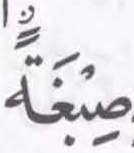 صِبْغَةً